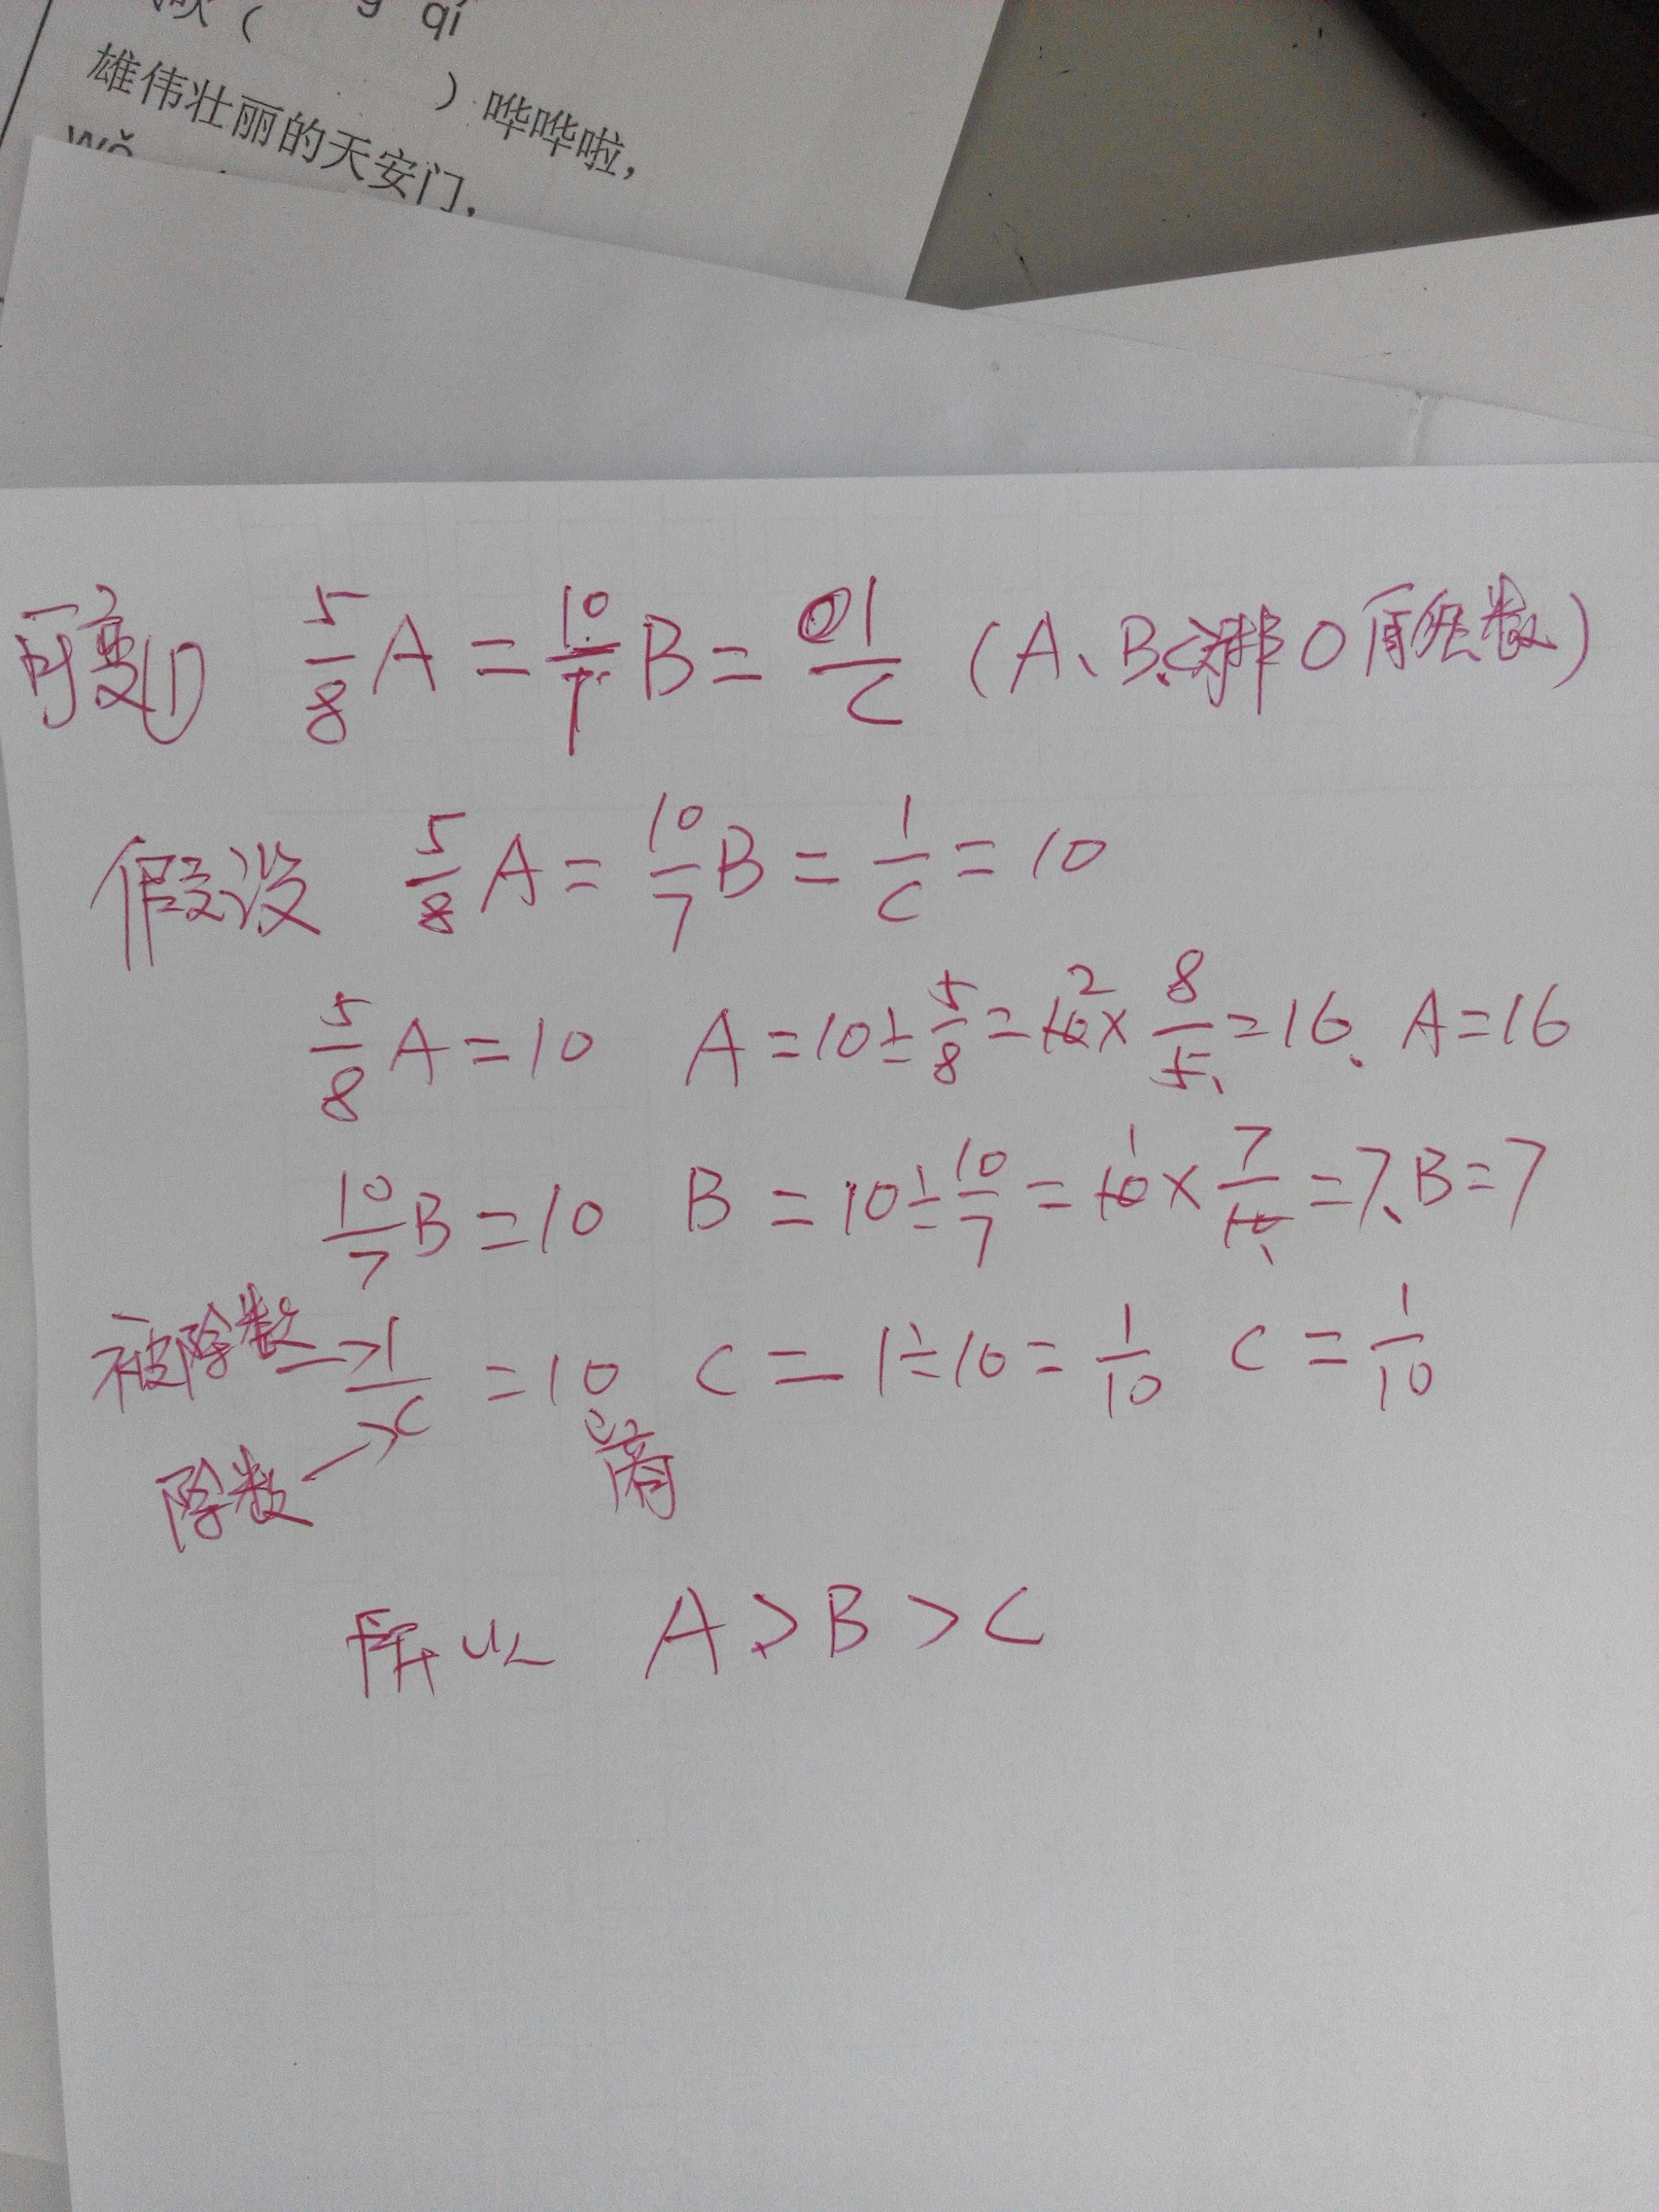 qí
) 哗哗啦,
雄伟壮丽的天安门,
wǒ
可变(1) 5/8 A = 10/7 B = 1/C (A、B、C为非0自然数)
假设 5/8 A = 10/7 B = 1/C = 10
5/8 A = 10 A = 10 ÷ 5/8 = 10 × 8/5 = 16. A = 16
10/7 B = 10 B = 10 ÷ 10/7 = 10 × 7/10 = 7、B = 7
被除数 → 1/C = 10 C = 1 ÷ 10 = 1/10 C = 1/10
除数 → 商
所以 A > B > C